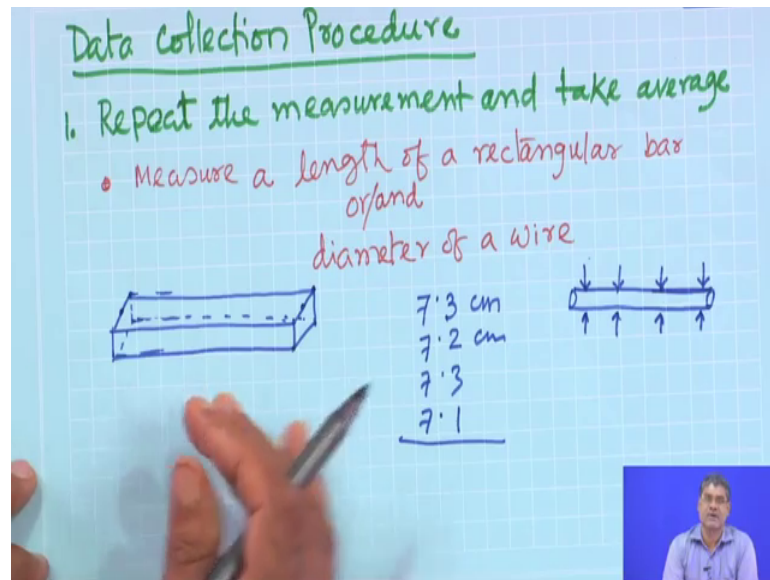 Data Collection Procedure
1. Repeat the measurement and take average
• Measure a length of a rectangular bar
or/and
diameter of a wire
7.3 cm
7.2 cm
7.3
7.1